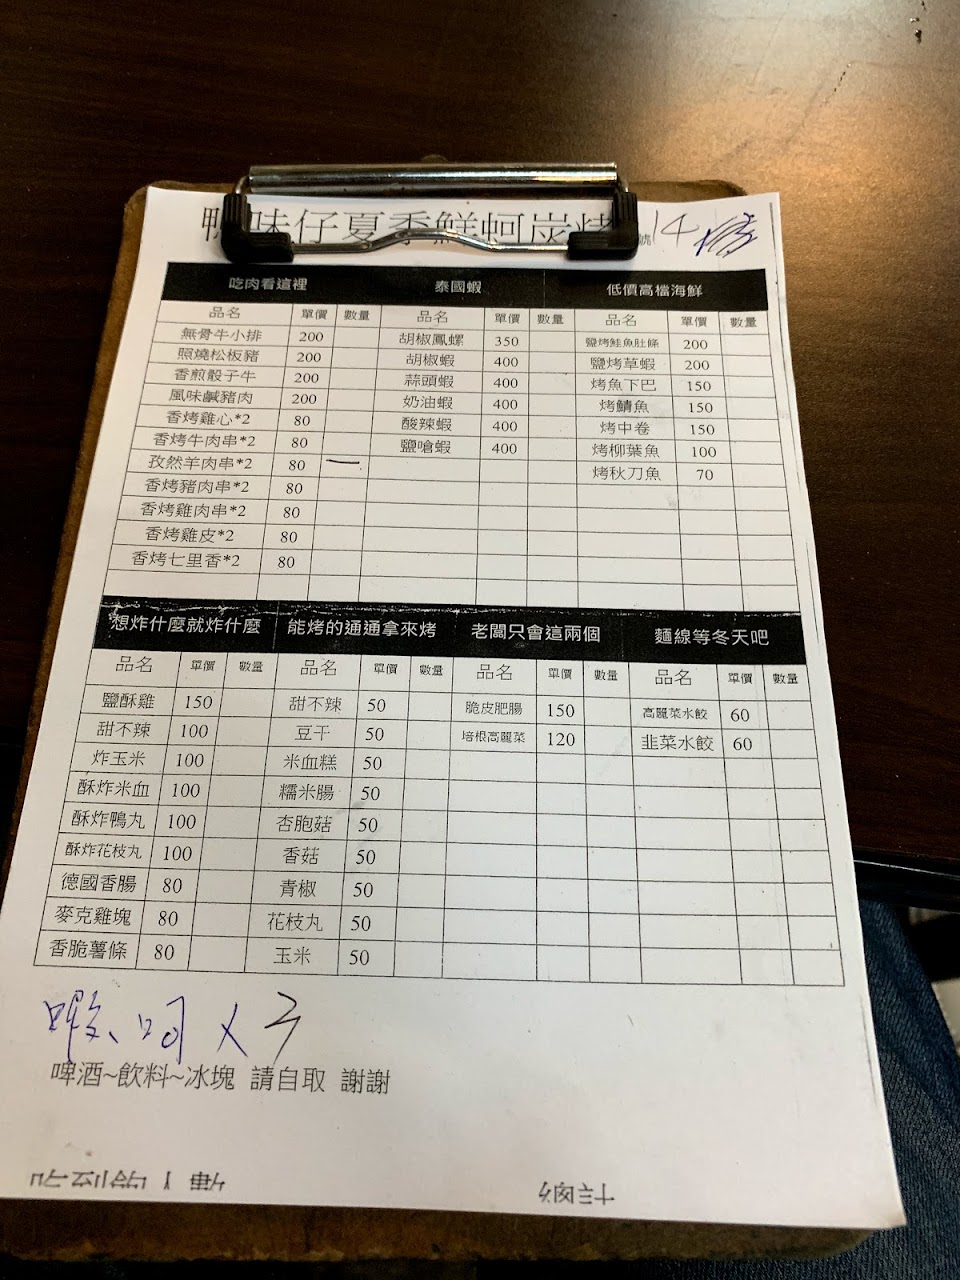 味仔夏季鮮蚵炭烤 號 14
吃肉看這裡 泰國蝦 低價高檔海鮮
品名 單價 數量 品名 單價 數量 品名 單價 數量
無骨牛小排 200 胡椒鳳螺 350 鹽烤鮭魚肚條 200
照燒松板豬 200 胡椒蝦 400 鹽烤草蝦 200
香煎骰子牛 200 蒜頭蝦 400 烤魚下巴 150
風味鹹豬肉 200 奶油蝦 400 烤鯖魚 150
香烤雞心*2 80 酸辣蝦 400 烤中卷 150
香烤牛肉串*2 80 鹽嗆蝦 400 烤柳葉魚 100
孜然羊肉串*2 80 一 烤秋刀魚 70
香烤豬肉串*2 80
香烤雞肉串*2 80
香烤雞皮*2 80
香烤七里香*2 80
想炸什麼就炸什麼 能烤的通通拿來烤 老闆只會這兩個 麵線等冬天吧
品名 單價 數量 品名 單價 數量 品名 單價 數量 品名 單價 數量
鹽酥雞 150 甜不辣 50 脆皮肥腸 150 高麗菜水餃 60
甜不辣 100 豆干 50 培根高麗菜 120 韭菜水餃 60
炸玉米 100 米血糕 50
酥炸米血 100 糯米腸 50
酥炸鴨丸 100 杏胞菇 50
酥炸花枝丸 100 香菇 50
德國香腸 80 青椒 50
麥克雞塊 80 花枝丸 50
香脆薯條 80 玉米 50
啤酒~飲料~冰塊 請自取 謝謝